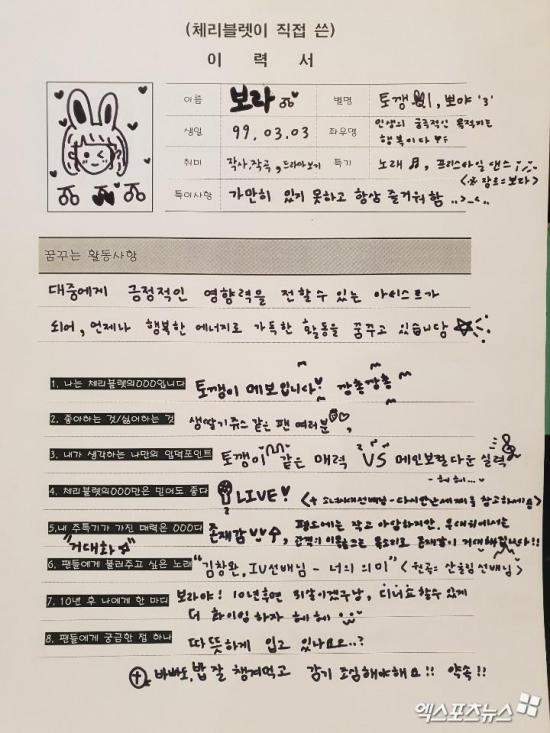 (체리블렛이 직접 쓴)
이 력 서
이름 보라 별명 토깽이, 뽀야 '3'
생일 99.03.03 좌우명 인생의 궁극적인 목적지는 행복이다
취미 작사,작곡, 드라마보기 특기 노래, 프리스타일 댄스
<※ 장르=보라>
특이사항 가만히 있지 못하고 항상 즐거워함 ..>_<..
꿈꾸는 활동사항
대중에게 긍정적인 영향력을 전할 수 있는 아티스트가
되어, 언제나 행복한 에너지로 가득한 활동을 꿈꾸고 있습니당
1. 나는 체리블렛의OOO입니다 토깽이 메보입니다! 깡총깡총
2. 좋아하는 것/싫어하는 것 생딸기쥬스 같은 팬 여러분
3. 내가 생각하는 나만의 입덕포인트 토깽이 같은 매력 VS 메인보컬다운 실력
-헤헤..-
4. 체리블렛의OOO만은 믿어도 좋다 LIVE! <+ 소녀시대선배님-다시만난세계를 참고하세용>
5.내 주특기가 가진 매력은 OOO다 존재감 평소에는 작고 아담하지만, 무대위에서는
"거대화" 관객의 이목을 끄는 목소리로 존재감이 거대해집니당!!
6. 팬들에게 불러주고 싶은 노래 "김창완, IU선배님 - 너의 의미" <원곡=산울림선배님>
7. 10년 후 나에게 한 마디 보라야! 10년후면 31살이겠구낭, 디너쇼할수 있게
더 화이팅하자 헤헤
8. 팬들에게 궁금한 점 하나 따뜻하게 입고 있나요..?
바빠도, 밥 잘 챙겨먹고 감기 조심해야해요!! 약속!!
엑스포츠뉴스